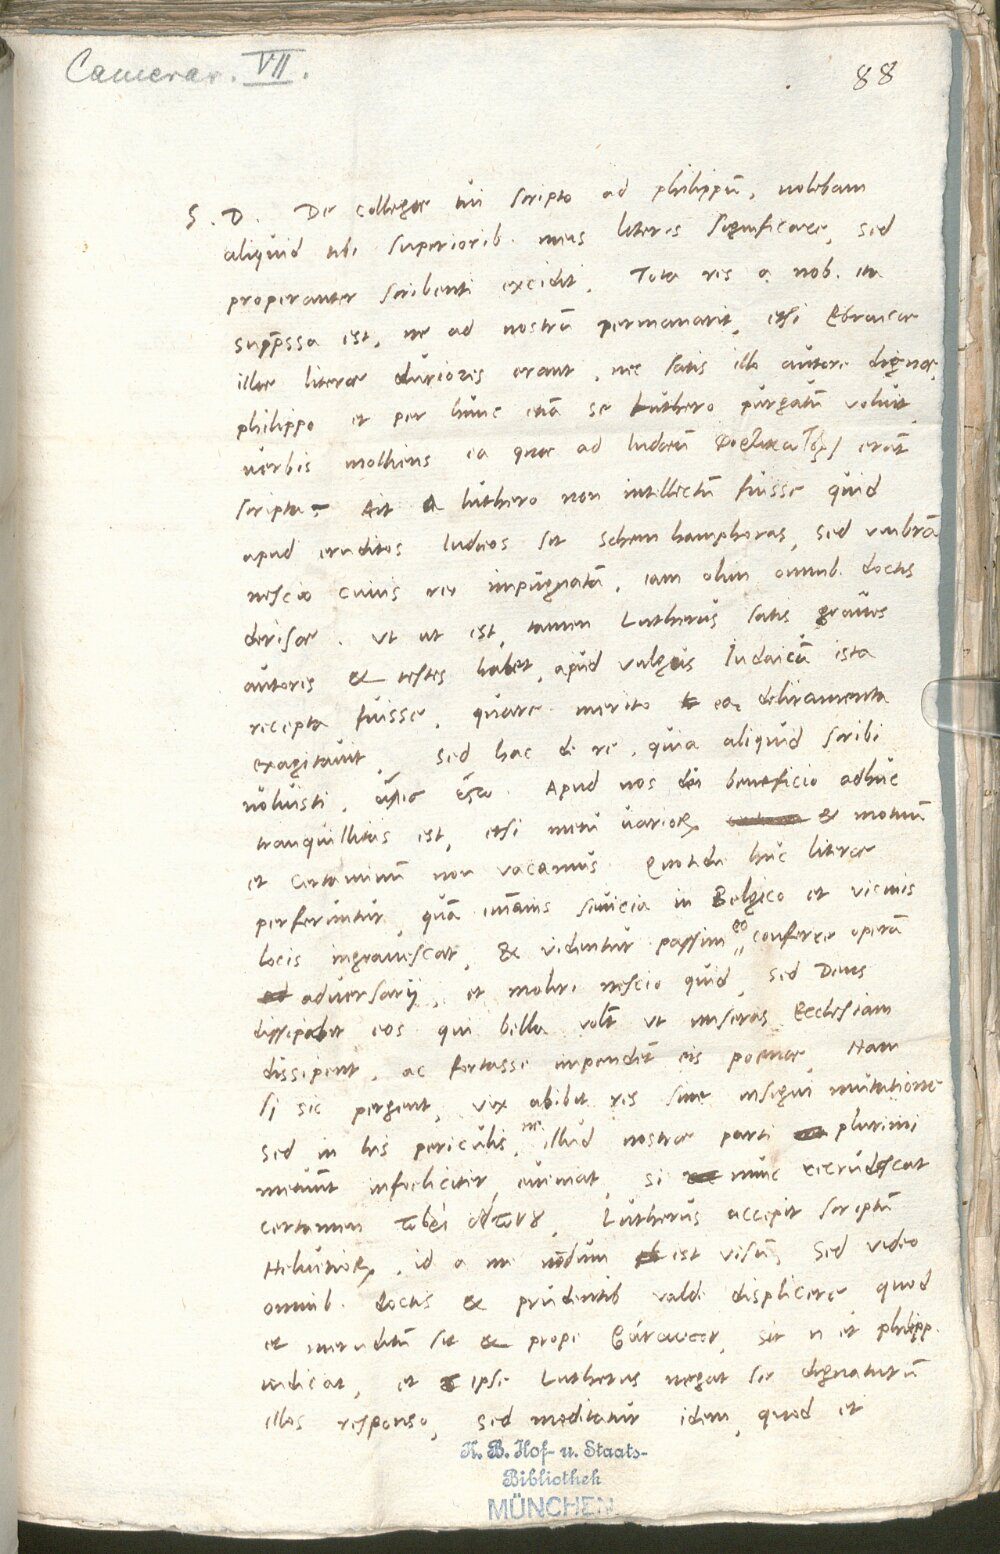 Camerar. VII.
88
S. D. De collegae tui scripto ad philippū, volebam
aliquid tibi superiorib. meis literis significare, sed
properanter scribenti excidit. Tota res a nob. ita
supp̄ssa est, ne ad nostrū permanarit, etsi Ebraicae
illae literae duriores erant, nec satis illo autore dignae,
philippo et per hunc etiā se Luthero purgatū voluit
verbis molliens ea quae ad Iudaeū erāt
scripta. Ait a luthero non intellectū fuisse quid
apud eruditos Iudaeos sit Schem hamphoras, sed umbrā
nescio cuius rei impugnatā, iam olim omnib. doctis
derisae. Ut ut est, tamen Lutherus satis graues
autores & testes habet, apud vulgus Iudaicū ista
recepta fuisse, quare merito ea deliramenta
exagitauit. Sed hac de re, quia aliquid scribi
voluisti, Apud nos dei beneficio adhuc
tranquillitas est, etsi metu varioR & motuū
et certaminū non vacamus. Quotidie huc literae
perferuntur, quā im̄anis seuicia in Belgico et vicinis
locis ingrauescat, & videntur passim eo conferre operā
adversarij, et moliri nescio quid, sed Deus
dissipabit eos qui bella volūt ut miseras Ecclesiam
dissipent, ac fortasse impendēt eis poenae. Nam
si sic pergent, vix abibit res sine insigni mutatione
Sed in his periculis, ne illud nostrae parti plurimi
metuūt infoeliciter eueniat, si nunc recrudescat
certamen Lutherus accepit scriptū
HelvetioR, id a me nōdum est visū, Sed video
omnib. doctis & prudentib valde displicere quod
et ineruditū sit & prope sic n̄ et philipp.
iudicat, et ipse Lutherus negat se dignaturū
illos responso, sed meditatur idem, quod et
K. B. Hof- u. Staats-
Bibliothek
MÜNCHEN.